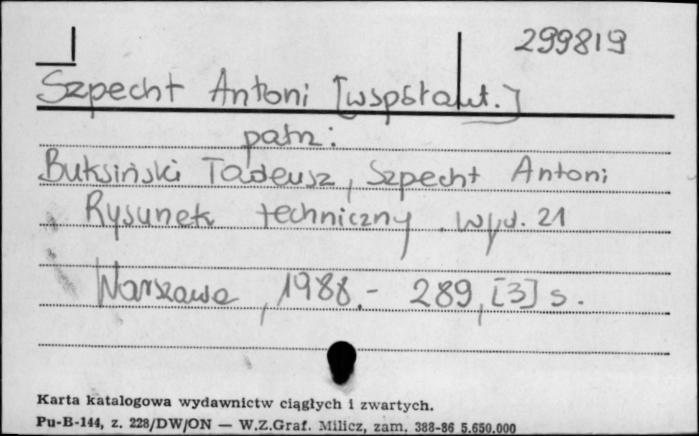 299819
Szpecht Antoni [współaut.]
patrz:
Buksiński Tadeusz, Szpecht Antoni
Rysunek techniczny. Wyd. 21
Warszawa, 1988.- 289, [3] s.
Karta katalogowa wydawnictw ciągłych i zwartych.
Pu-B-144, z. 228/DW/ON — W.Z.Graf. Milicz, zam. 388-86 5.650.000